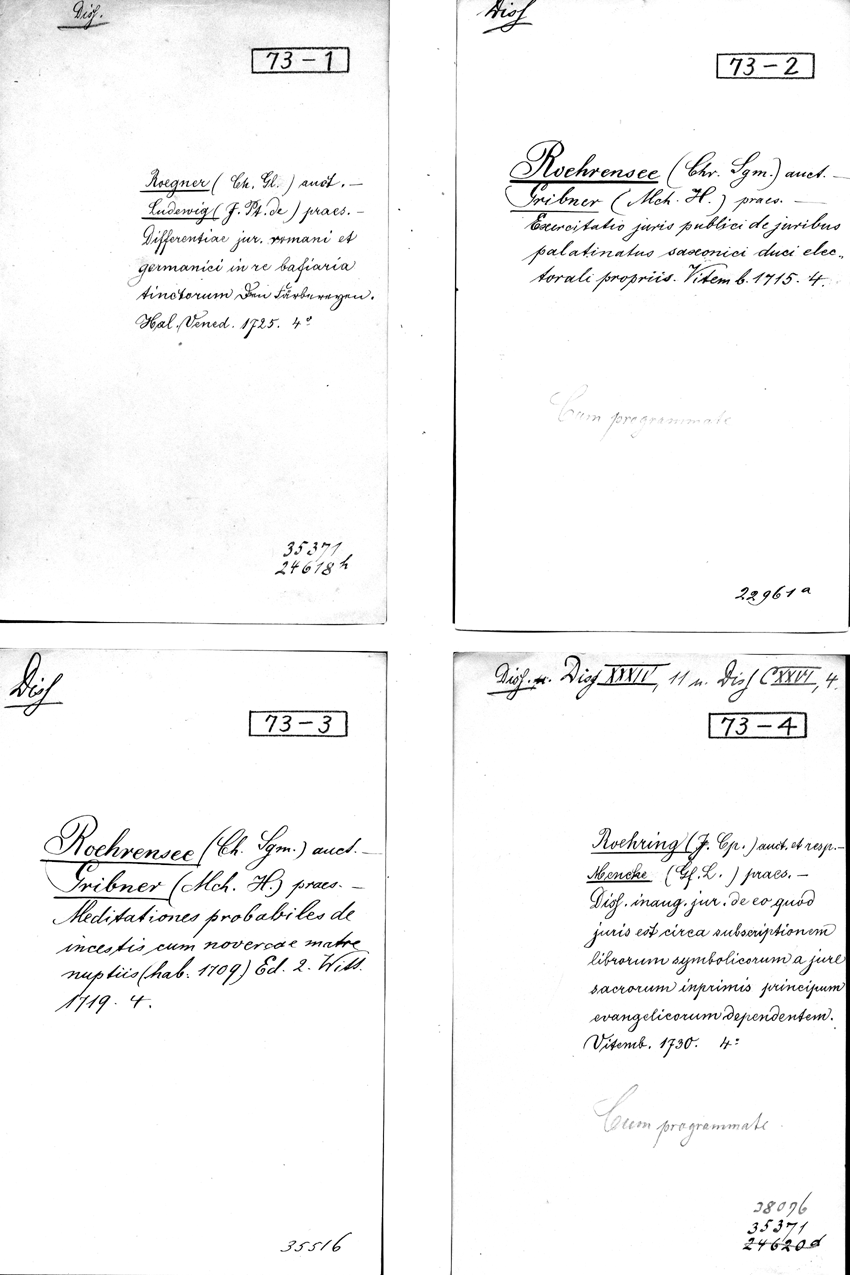 Diss.
73-1
Roegner (Ch. Gl.) auct. —
Ludewig (J. Pt. de) praes. —
Differentiae jur. romani et
germanici in re bafiaria
tinctorum Den Färbereyen.
Hal. Vened. 1725. 4°
35371
24618 h
Diss
73-2
Roehrensee (Chr. Sgm.) auct. —
Gribner (Mch. H.) praes. —
Exercitatio juris publici de juribus
palatinatus saxonici duci elec-
torali propriis. Vitemb. 1715. 4.
Cum programmate
22961 a
Diss
73-3
Roehrensee (Ch. Sgm.) auct. —
Gribner (Mch. H.) praes. —
Meditationes probabiles de
incestis cum novercae matre
nuptiis (hab. 1709) Ed. 2. Witt.
1719. 4.
35516
Diss. u. Diss XXXII, 11 u. Diss CXXVI, 4.
73-4
Roehring (J. Cp.) auct. et resp. —
Mencke (Gf. L.) praes. —
Diss. inaug. jur. de eo quod
juris est circa subscriptionem
librorum symbolicorum a jure
sacrorum inprimis principum
evangelicorum dependentem.
Vitemb. 1730. 4°
Cum programmate
38096
35371
24620 d